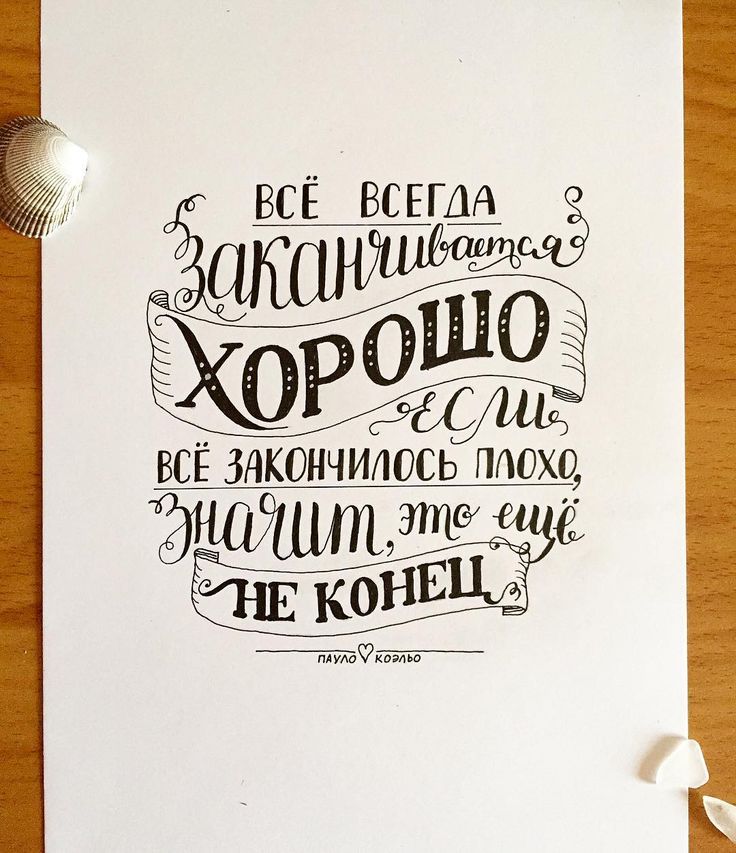 ВСЁ ВСЕГДА
заканчивается
ХОРОШО
если
ВСЁ ЗАКОНЧИЛОСЬ ПЛОХО,
значит, это ещё
НЕ КОНЕЦ
ПАУЛО КОЭЛЬО